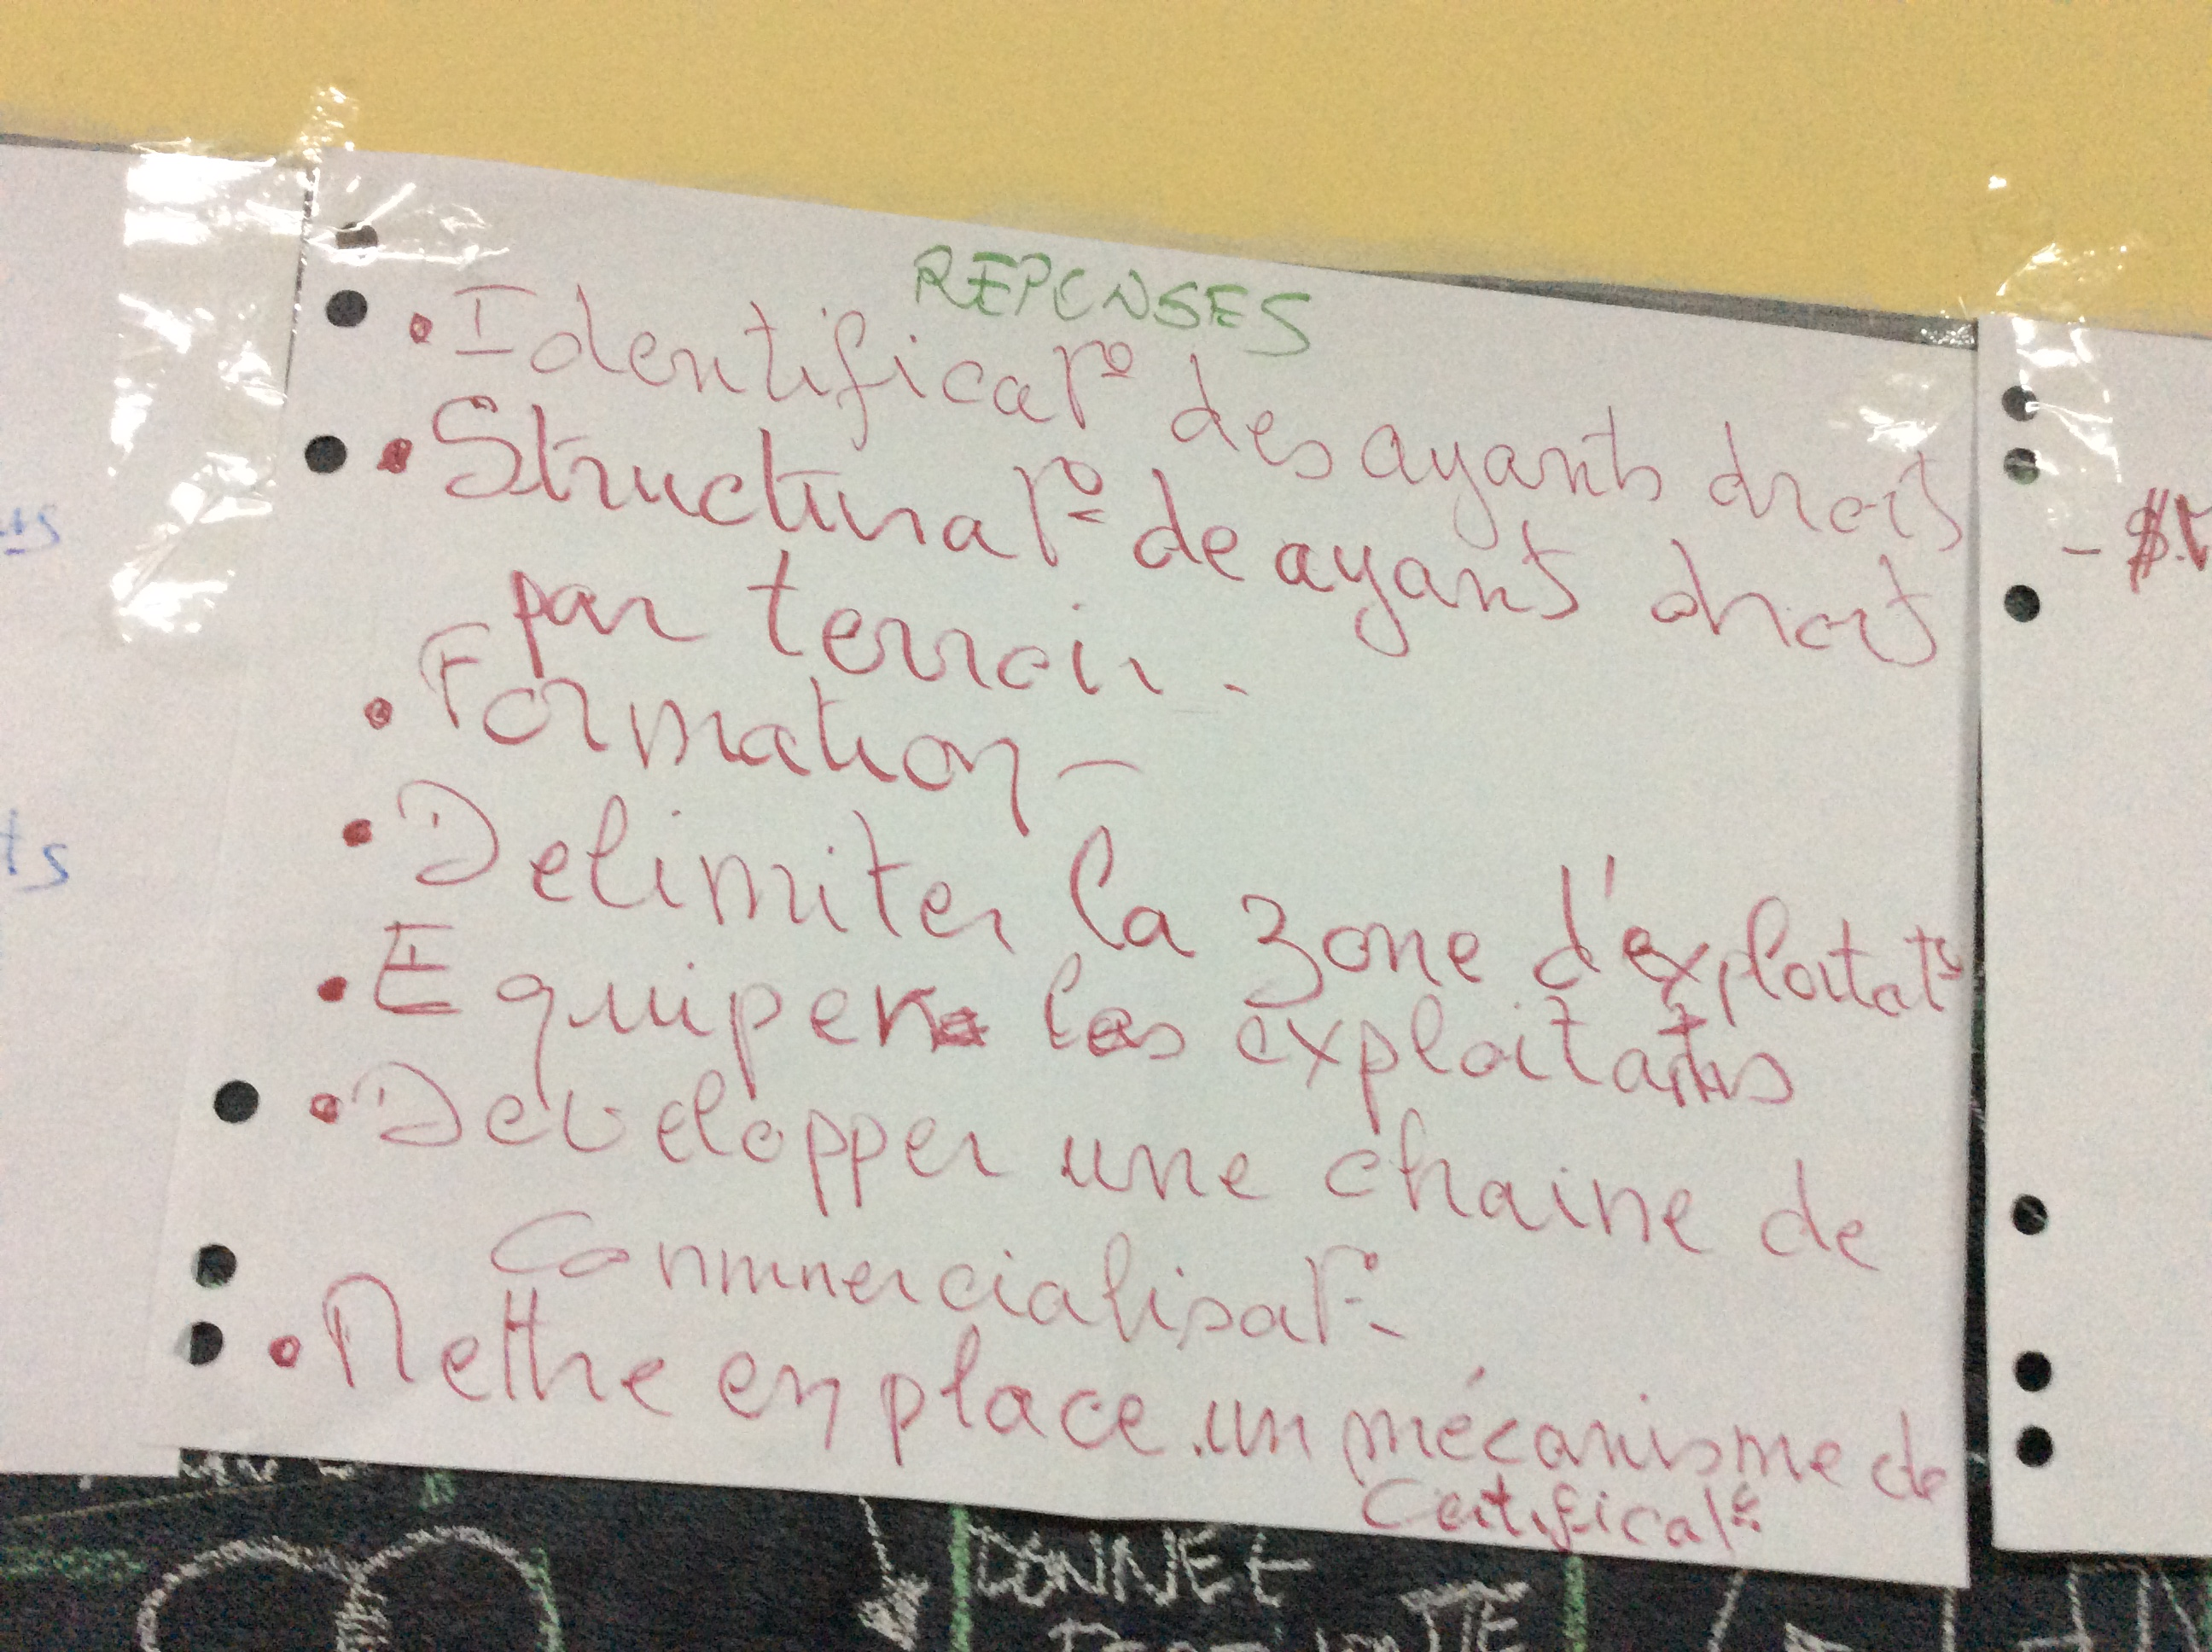 REPONSES
• Identificat° des ayants droits
• Structurat° de ayants droits
par terroir.
• Formation -
• Delimiter la zone d'exploitat°
• Equiper les exploitants
• Developper une chaine de
Commercialisat°-
• Mettre en place un mécanisme de
Certificat°
us
ts
- $
DONNEE